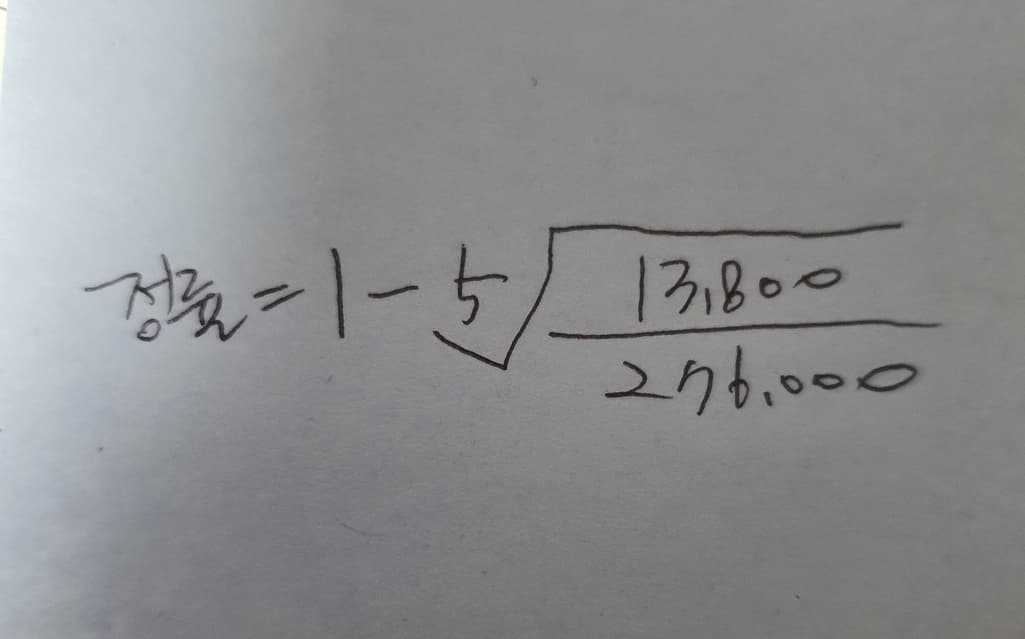 정률 = 1 - 5√ 13,800
276,000